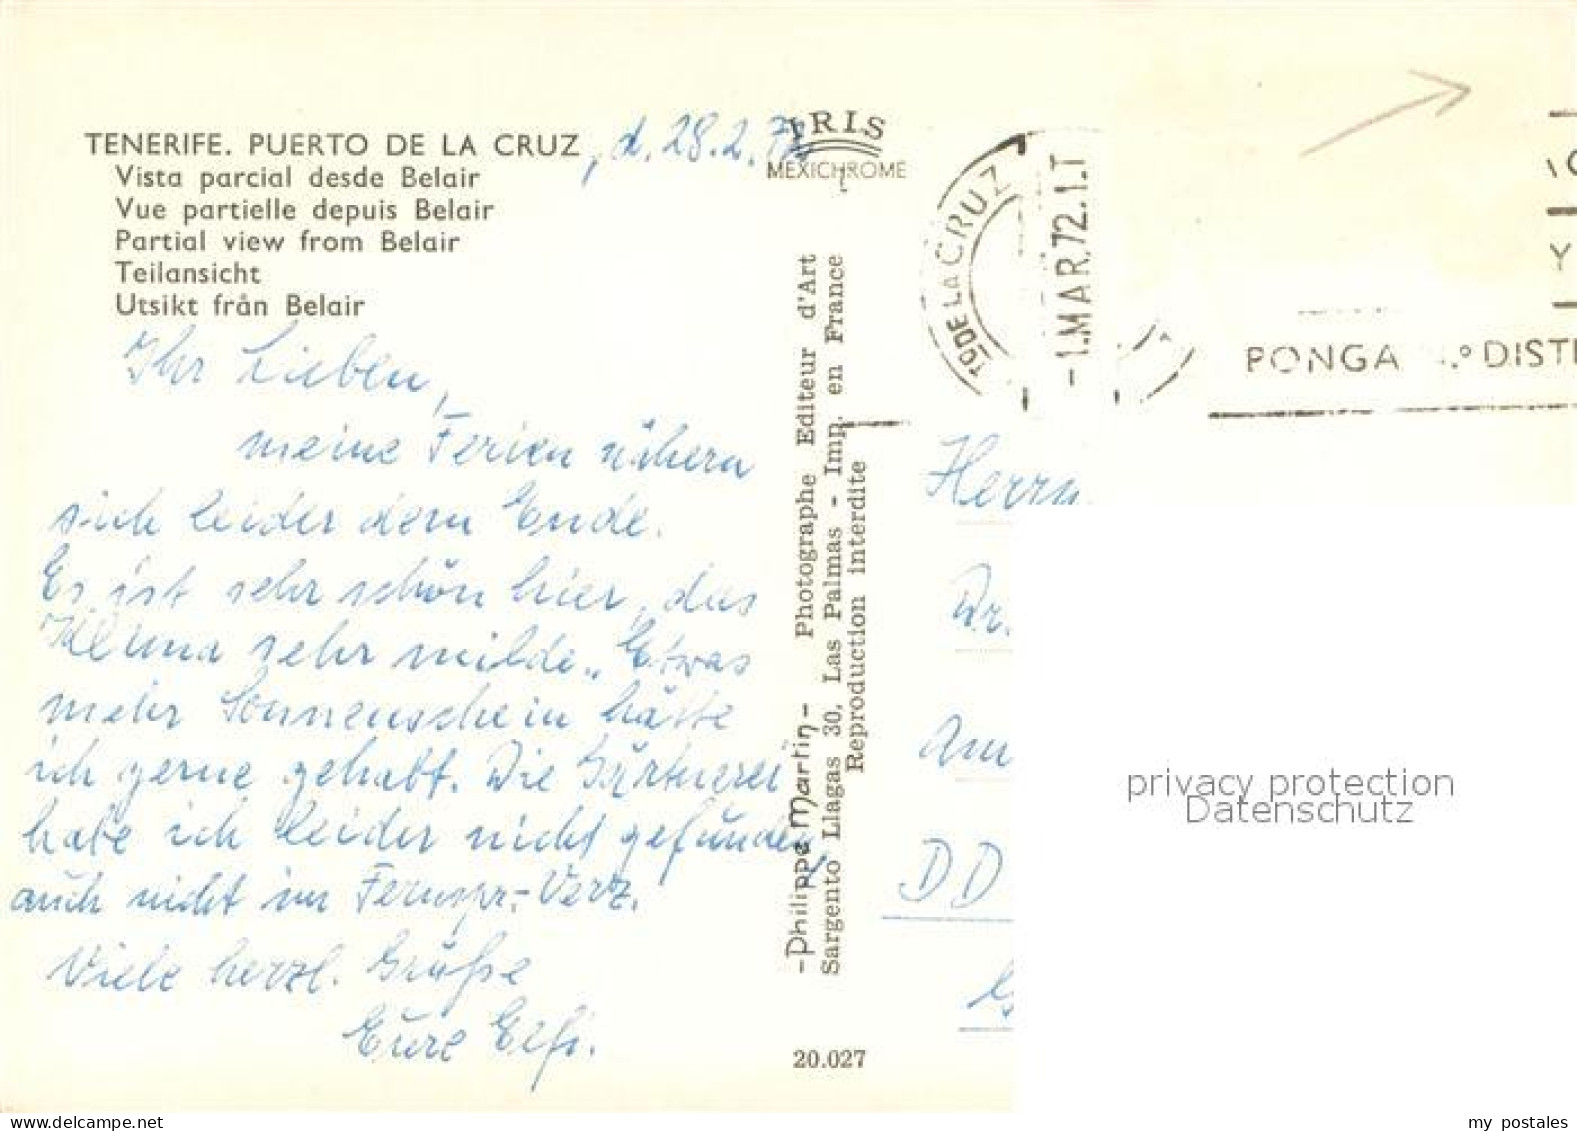 TENERIFE. PUERTO DE LA CRUZ, d. 28.2.72
Vista parcial desde Belair
Vue partielle depuis Belair
Partial view from Belair
Teilansicht
Utsikt från Belair
Ihr Lieben,
meine Ferien nähern
sich leider dem Ende.
Es ist sehr schön hier, das
Klima sehr milde. Etwas
mehr Sonnenschein hätte
ich gerne gehabt. Die Gärtnerei
habe ich leider nicht gefunden,
auch nicht im Fernspr.-Verz.
Viele herzl. Grüße
Eure Elfi.
IRIS
MEXICHROME
-Philippe Martin- Photographe Editeur d'Art
Sargento Llagas 30, Las Palmas - Imp. en France
Reproduction interdite
20.027
TO DE LA CRUZ
-1.MAR.72.1.T
Y
PONGA N.º DIST
Herrn
Dr.
Am
DD
privacy protection
Datenschutz
delcampe.net
my_postales